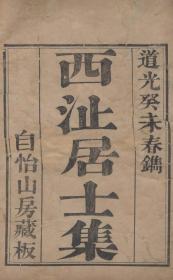 道光癸未春鐫
西沚居士集
自怡山房藏板